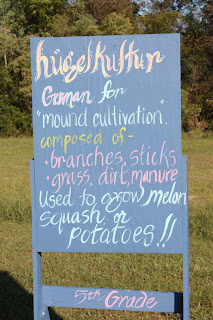 hügelkultur
German for
"mound cultivation".
composed of-
• branches, sticks
• grass, dirt, manure
Used to grow melon
squash or
potatoes!!
5th Grade